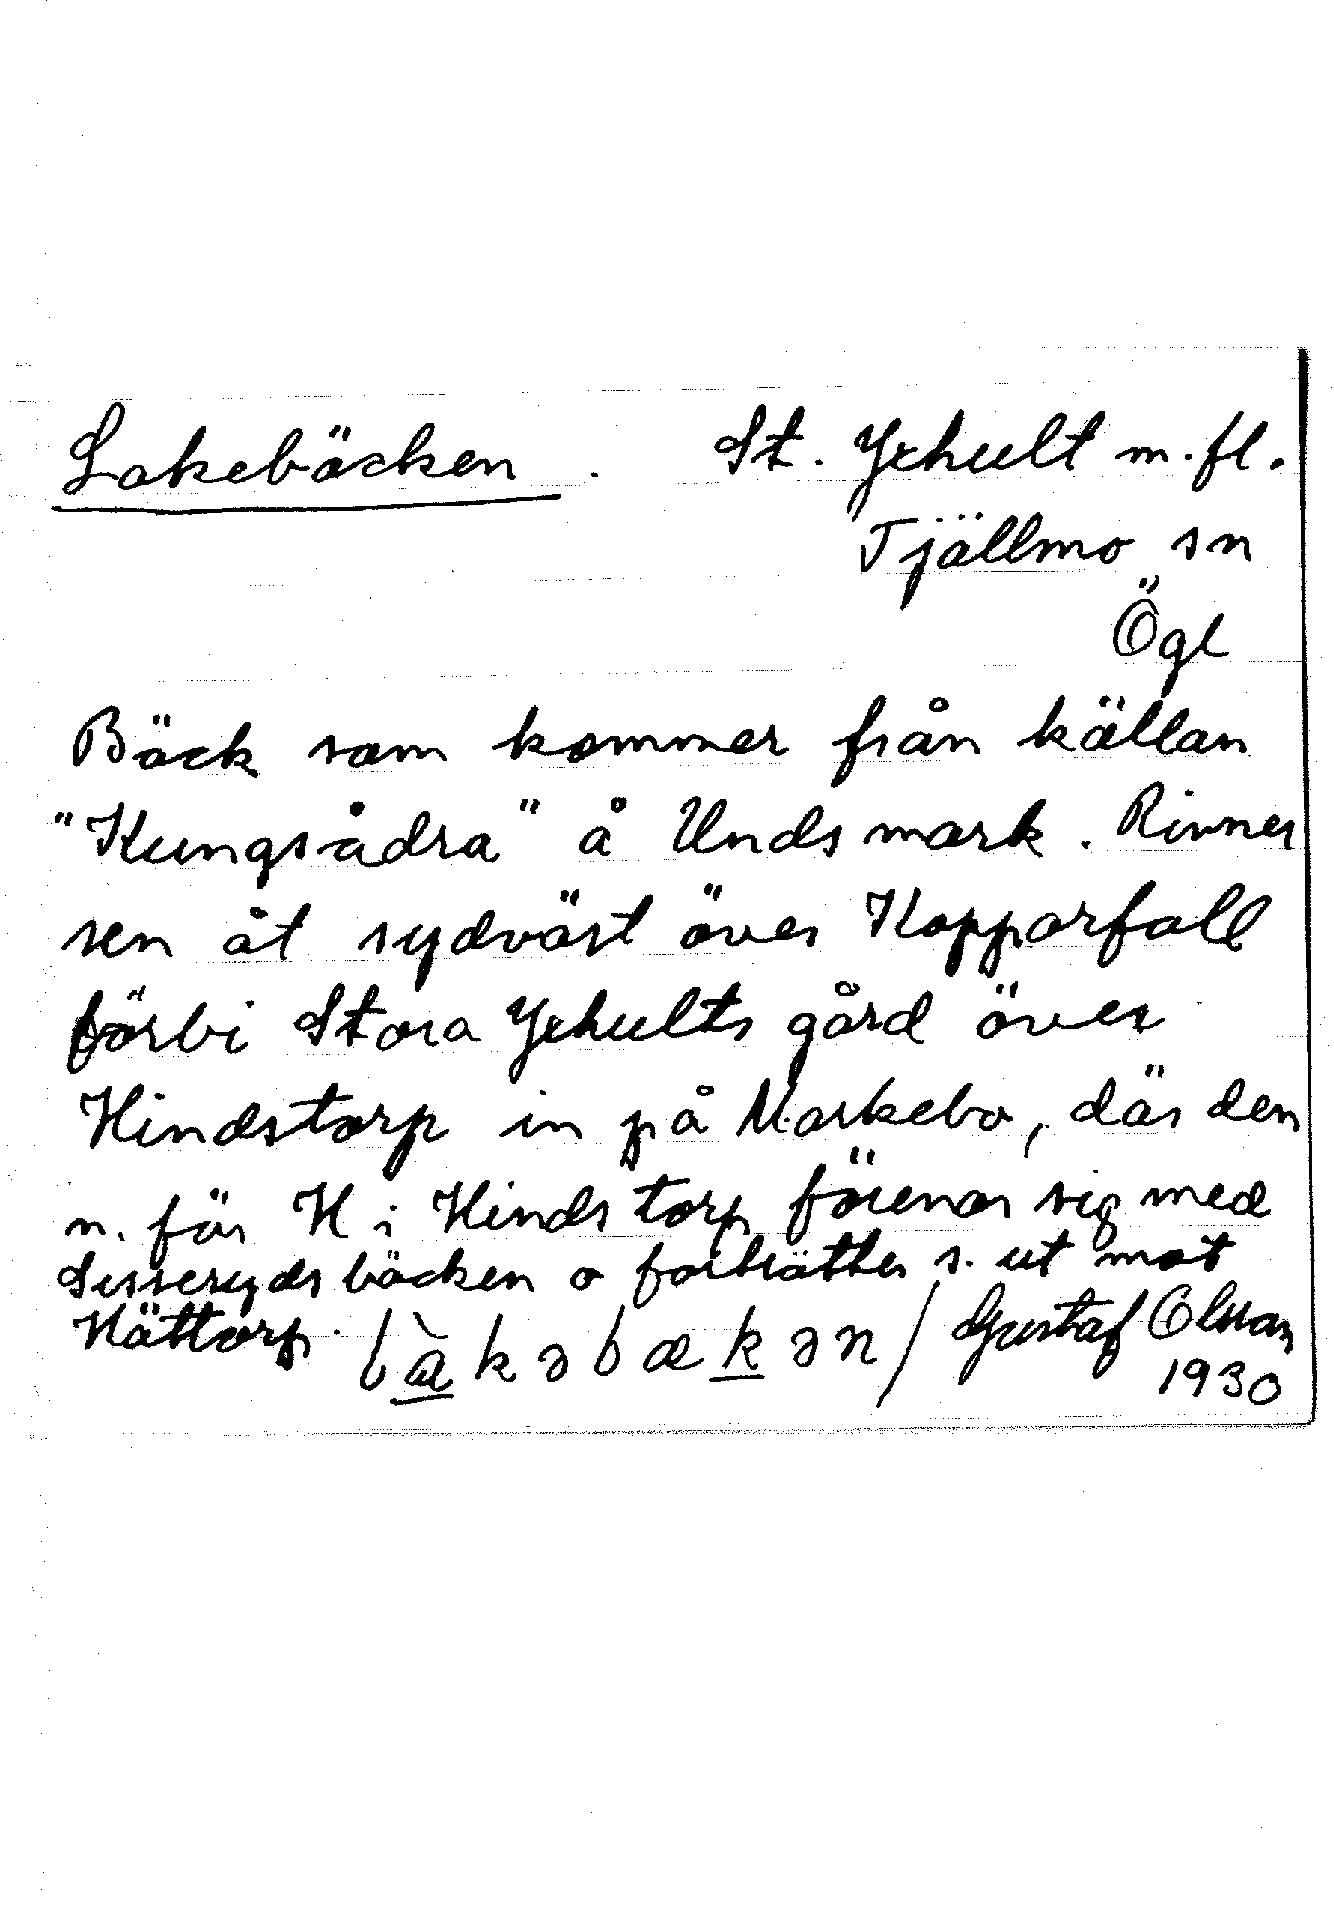 Lakebäcken. St. Yxhult m.fl.
Tjällmo sn
Ögl
Bäck som kommer från källan
"Kungsådra" å Unds mark. Rinner
sen åt sydväst över Kopparfall
förbi Stora Yxhults gård över
Hindstorp in på Markebo, där den
n. för H i Hindstorp förenar sig med
bäcken o fortsätter s. ut mot
Hättorp. làkəbækən / Gustaf Olsson
1930